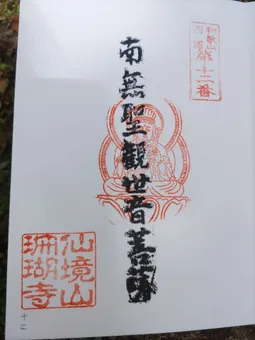 十二番
南無聖觀世音菩薩
仙境山
珊瑚寺
十二